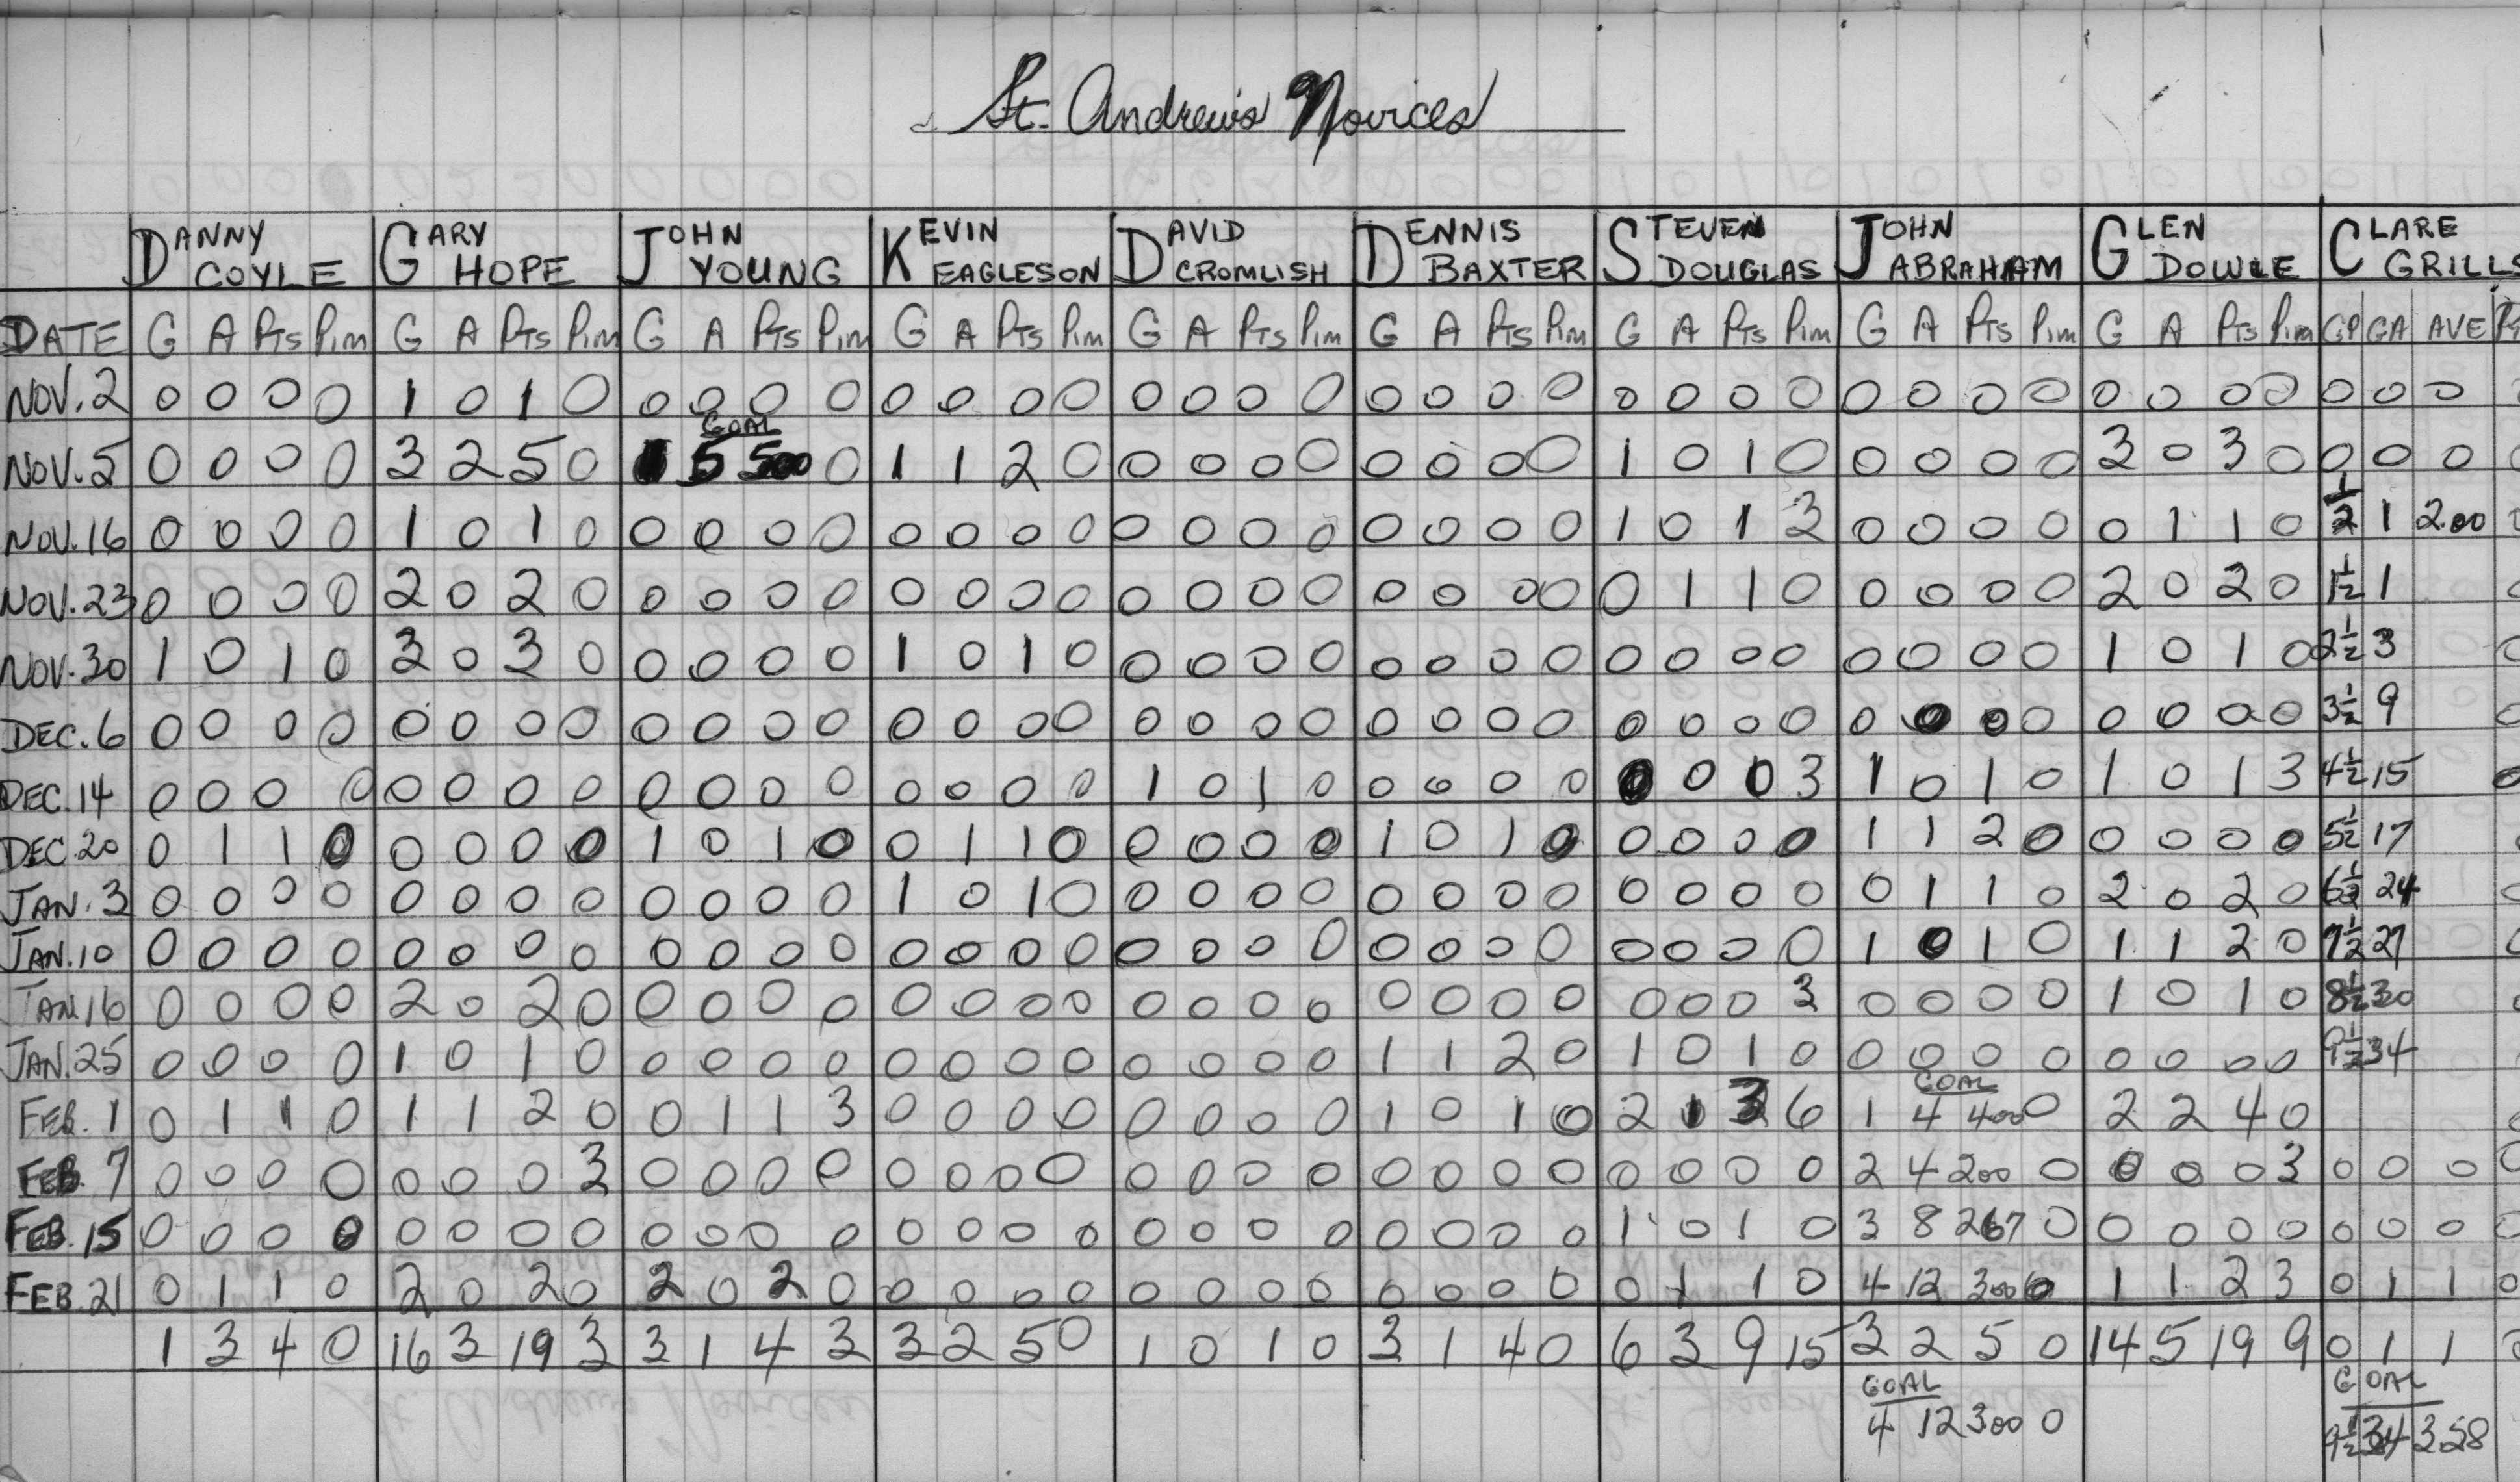 St. Andrew's Novices
DANNY COYLE GARY HOPE JOHN YOUNG KEVIN EAGLESON DAVID CROMLISH DENNIS BAXTER STEVEN DOUGLAS JOHN ABRAHAM GLEN DOWLE CLARE GRILLS
DATE G A PTS PIM G A PTS PIM G A PTS PIM G A PTS PIM G A PTS PIM G A PTS PIM G A PTS PIM G A PTS PIM G A PTS PIM GP GA AVE
NOV. 2 0 0 0 0 1 0 1 0 0 0 0 0 0 0 0 0 0 0 0 0 0 0 0 0 0 0 0 0 0 0 0 0 0 0 0 0 0 0 0
GOAL
NOV. 5 0 0 0 0 3 2 5 0 1 5 500 0 1 1 2 0 0 0 0 0 0 0 0 0 1 0 1 0 0 0 0 0 3 0 3 0 0 0 0
NOV. 16 0 0 0 0 1 0 1 0 0 0 0 0 0 0 0 0 0 0 0 0 0 0 0 0 1 0 1 3 0 0 0 0 0 1 1 0 1/2 1 2.00
NOV. 23 0 0 0 0 2 0 2 0 0 0 0 0 0 0 0 0 0 0 0 0 0 0 0 0 0 1 1 0 0 0 0 0 2 0 2 0 1 1/2 1
NOV. 30 1 0 1 0 3 0 3 0 0 0 0 0 1 0 1 0 0 0 0 0 0 0 0 0 0 0 0 0 0 0 0 0 1 0 1 0 2 1/2 3
DEC. 6 0 0 0 0 0 0 0 0 0 0 0 0 0 0 0 0 0 0 0 0 0 0 0 0 0 0 0 0 0 0 0 0 0 0 0 0 3 1/2 9
DEC. 14 0 0 0 0 0 0 0 0 0 0 0 0 0 0 0 0 1 0 1 0 0 0 0 0 0 0 0 3 1 0 1 0 1 0 1 3 4 1/2 15
DEC. 20 0 1 1 0 0 0 0 0 1 0 1 0 0 1 1 0 0 0 0 0 1 0 1 0 0 0 0 0 1 1 2 0 0 0 0 0 5 1/2 17
JAN. 3 0 0 0 0 0 0 0 0 0 0 0 0 1 0 1 0 0 0 0 0 0 0 0 0 0 0 0 0 0 1 1 0 2 0 2 0 6 1/2 24
JAN. 10 0 0 0 0 0 0 0 0 0 0 0 0 0 0 0 0 0 0 0 0 0 0 0 0 0 0 0 0 1 0 1 0 1 1 2 0 7 1/2 27
JAN. 16 0 0 0 0 2 0 2 0 0 0 0 0 0 0 0 0 0 0 0 0 0 0 0 0 0 0 0 3 0 0 0 0 1 0 1 0 8 1/2 30
JAN. 25 0 0 0 0 1 0 1 0 0 0 0 0 0 0 0 0 0 0 0 0 1 1 2 0 1 0 1 0 0 0 0 0 0 0 0 0 9 1/2 34
GOAL
FEB. 1 0 1 1 0 1 1 2 0 0 1 1 3 0 0 0 0 0 0 0 0 1 0 1 0 2 1 3 6 1 4 400 0 2 2 4 0
FEB. 7 0 0 0 0 0 0 0 3 0 0 0 0 0 0 0 0 0 0 0 0 0 0 0 0 0 0 0 0 2 4 200 0 0 0 0 3 0 0 0
FEB. 15 0 0 0 0 0 0 0 0 0 0 0 0 0 0 0 0 0 0 0 0 0 0 0 0 1 0 1 0 3 8 267 0 0 0 0 0 0 0 0
FEB. 21 0 1 1 0 2 0 2 0 2 0 2 0 0 0 0 0 0 0 0 0 0 0 0 0 0 1 1 0 4 12 300 0 1 1 2 3 0 1 1 0
1 3 4 0 16 3 19 3 3 1 4 3 3 2 5 0 1 0 1 0 3 1 4 0 6 3 9 15 3 2 5 0 14 5 19 9 0 1 1
GOAL GOAL
4 12 300 0 9 1/2 34 3.58